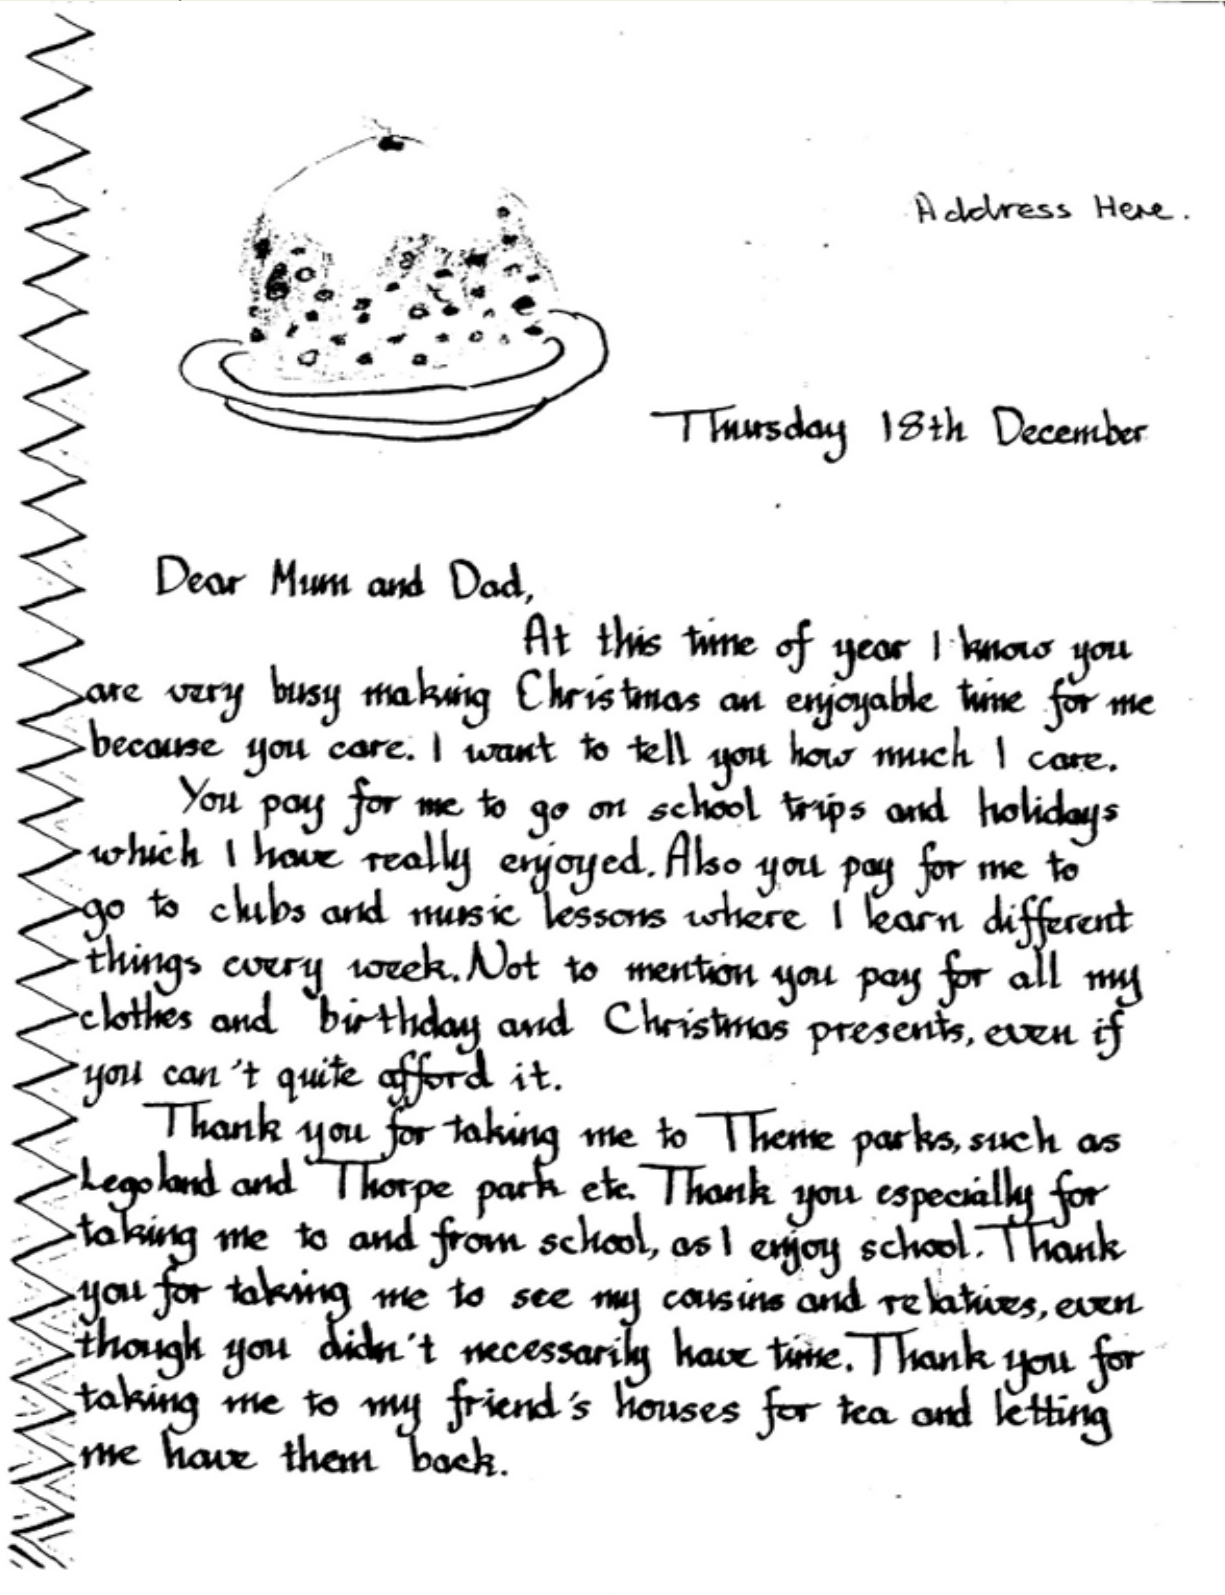 Address Here.
Thursday 18th December
Dear Mum and Dad,
At this time of year I know you
are very busy making Christmas an enjoyable time for me
because you care. I want to tell you how much I care.
You pay for me to go on school trips and holidays
which I have really enjoyed. Also you pay for me to
go to clubs and music lessons where I learn different
things every week. Not to mention you pay for all my
clothes and birthday and Christmas presents, even if
you can't quite afford it.
Thank you for taking me to Theme parks, such as
Legoland and Thorpe park etc. Thank you especially for
taking me to and from school, as I enjoy school. Thank
you for taking me to see my cousins and relatives, even
though you didn't necessarily have time. Thank you for
taking me to my friend's houses for tea and letting
me have them back.